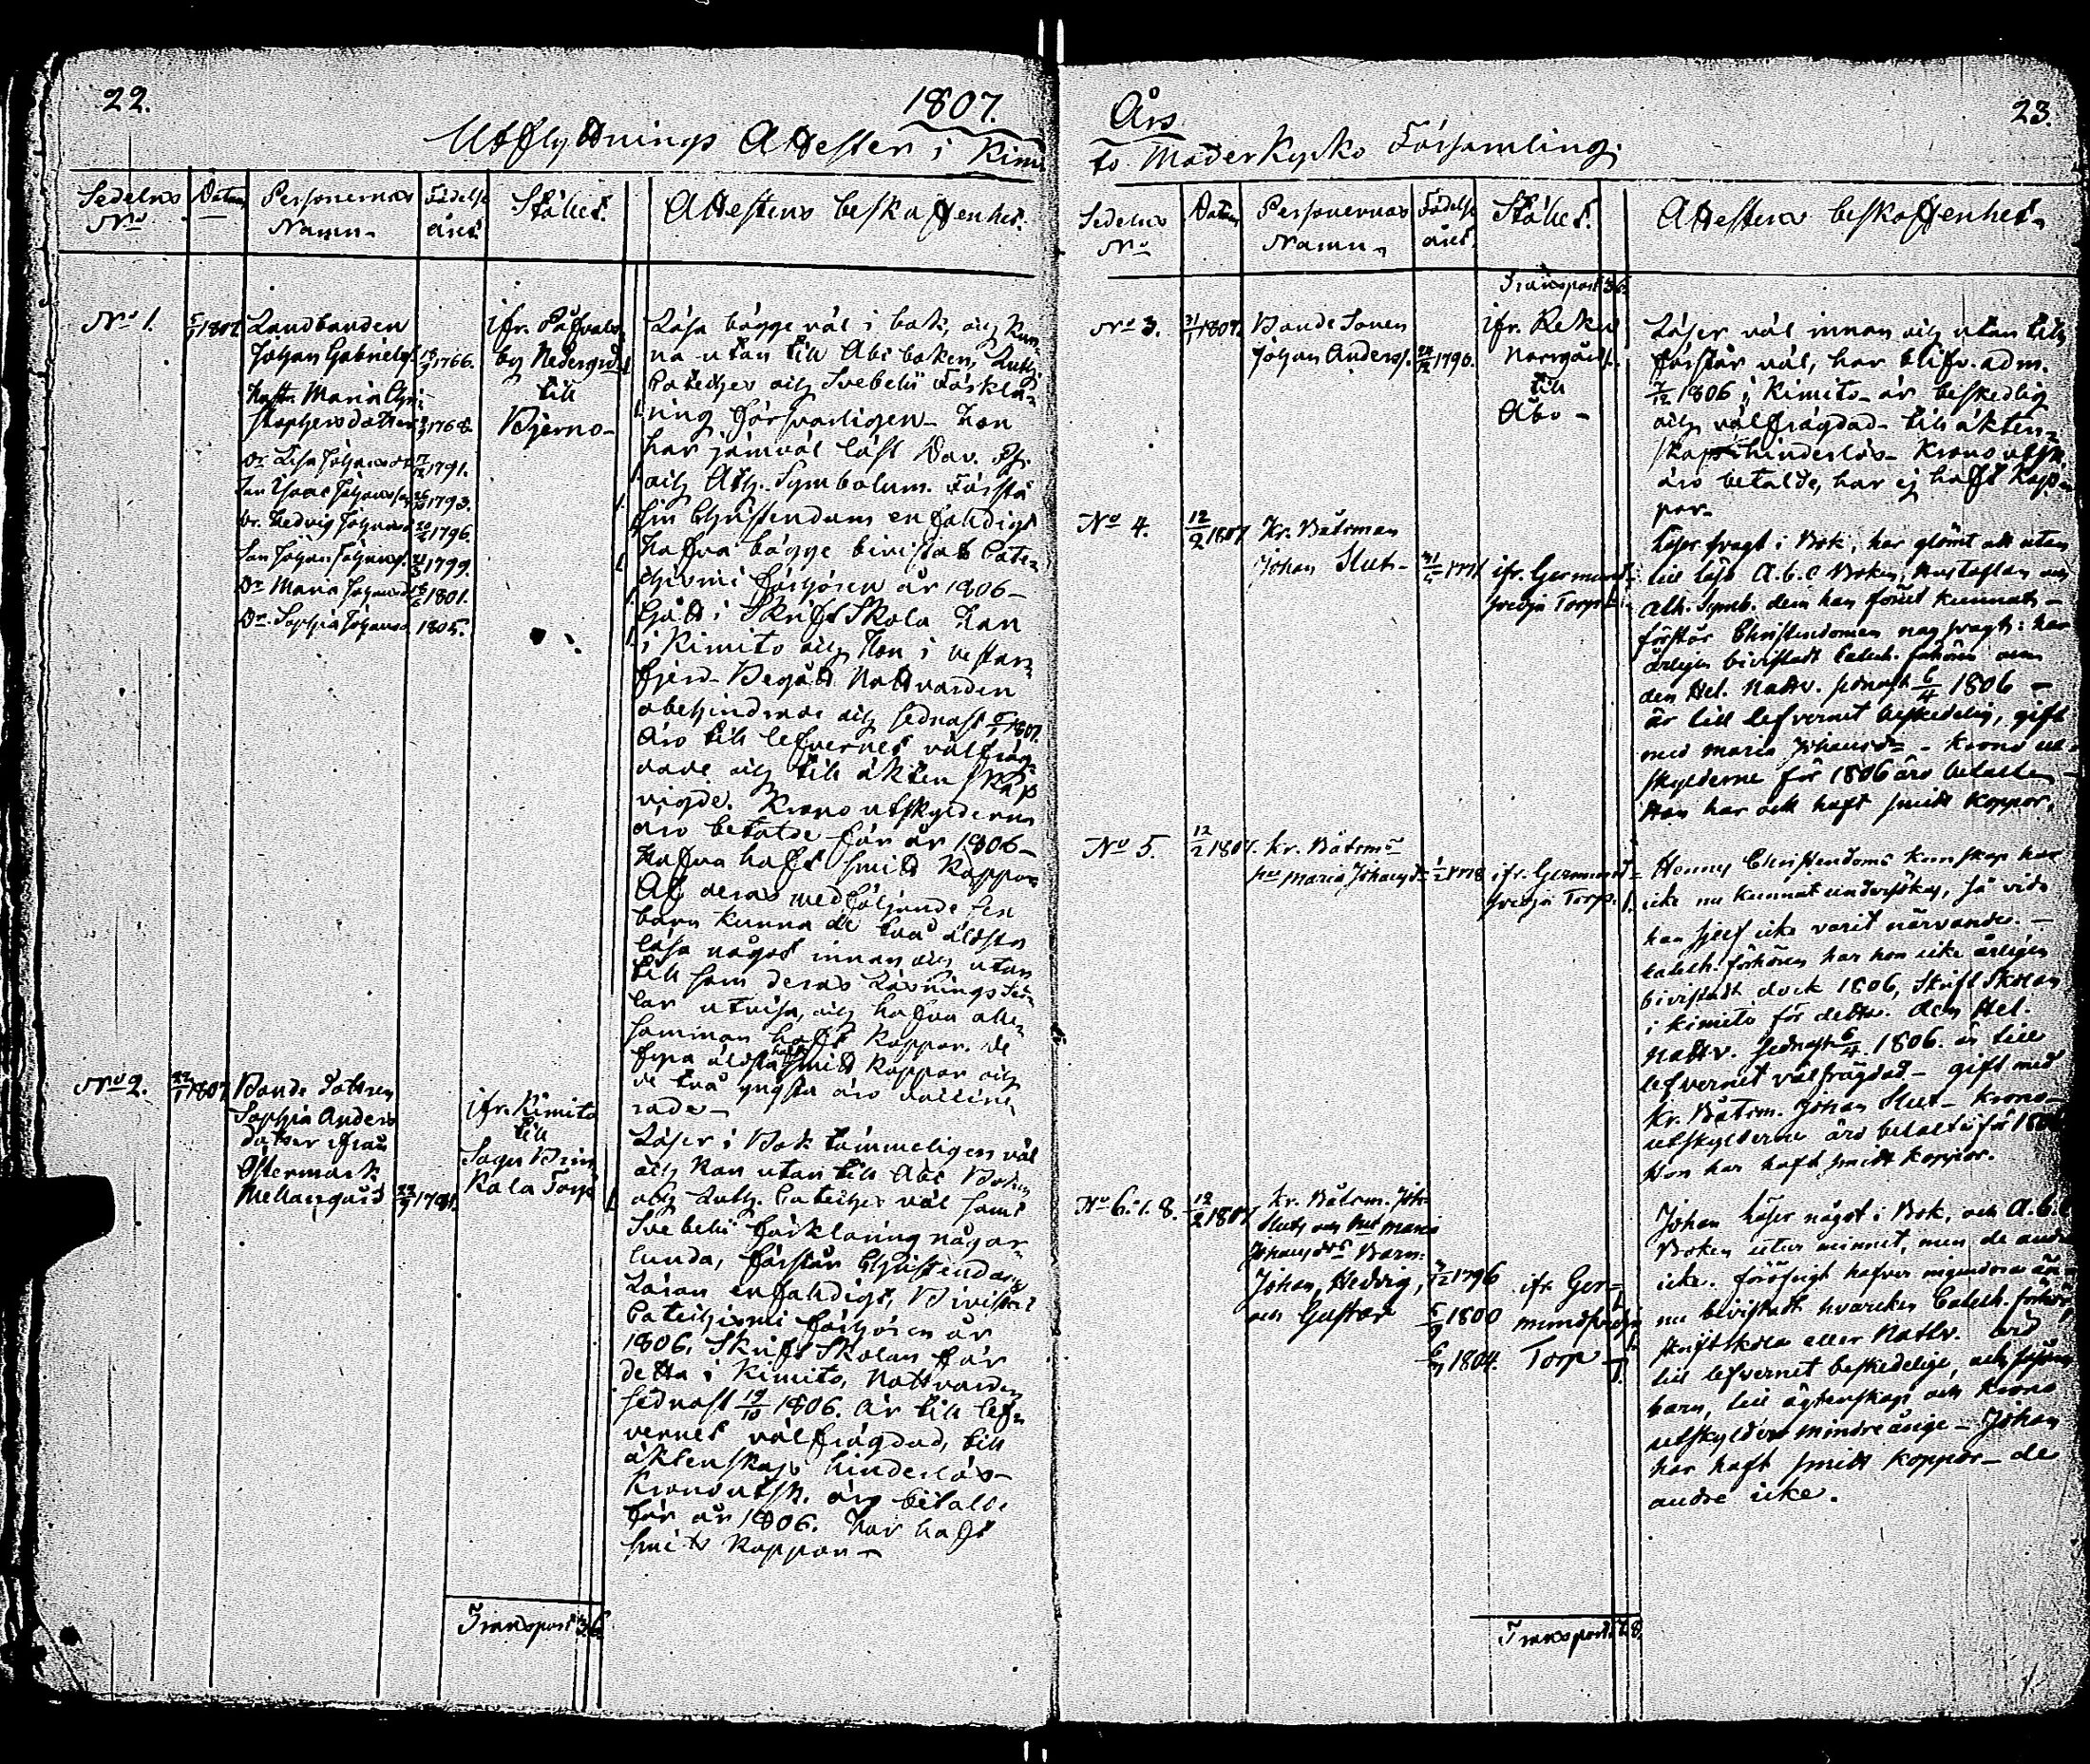 22.
1807.
Utflyttnings Attester i Kimi
Sedelns No
Datum
Personernas Namn
Födelse året
Stället.
Attestens beskaffenhet.
No 1.
1807.
Landbonden
Johan Gabriels.
1766.
Hustr. Maria Chri-
stophersdotter
1768.
Dr. Lisa Johansdr
1791.
Son Isaac Johanss.
1793.
Dr. Hedvig Johansd.
1796.
Son Johan Johanss.
1799.
Dr Maria Johansd.
1801.
Dr. Sophia Johansd.
1805.
ifr.
by Nedergård
till
Bjerno-
Läsa bägge väl i bok, och kun-
na utan till Abc boken, Luth.
Cateches och Svebelii Förkla-
ring försvarligen- Hon
har jämväl läst Dav. Ps.
och Ath. Symbolum. Förstå
sin Christendom enfaldigt
Hafva bägge bivistat Cate-
chismi förhören år 1806-
Gått i Skrift Skola Han
i Kimito och Hon i Vestan-
fjerd- Begått Nattvarden
obehindrade och sednast 1807.
äro till lefvernet välfräg-
dade och till äktenskap
vigde. Kronoutskylderna
äro betalde för år 1806-
Hafva haft smitt Koppor
Af deras medföljande sex
barn kunna de två äldsta
läsa något innan och utan
till som deras Läsnings Sed-
lar utvisa, och hafva alle-
samman haft Koppor. de
fyra äldsta haft smitt Koppor och
de två yngsta äro vaccine-
rade-
No 2.
1807.
Bonde Dottren
Sophia Anders
dotter ifrån
Östermark
Mellangård
ifr. Kimito
till
Sagu
Kala Torp
Läser i Bok tämmeligen väl
och kan utan till Abc Boken
och Luth. Catechis väl samt
Svebelii förklaring någor-
lunda, förstår Christendoms
Läran enfaldigt, Bivistat
Catechismi förhören år
1806. Skrift Skolan för
detta i Kimito, Nattvarden
sednast 19/10 1806. är till lef-
vernet välfrägdad, till
äktenskap hinderlös-
Kronoutsk. äro betalde
för år 1806. Har haft
smitt Koppor-
Transport 36.
23.
Års
to Moderkyrko Församling.
Sedelns No
Datum
Personernas Namn
Födelse året.
Stället.
Attestens beskaffenhet.
Transport 36.
No 3.
31/1 1807.
Bonde Sonen
Johan Anderss.
1790.
ifr. Reku
Norrgård
till
Åbo-
Läser väl innan och utan till,
förstår väl, har blifv. adm.
1806 i Kimito- är beskedlig
och välfrägdad- till äkten-
skap hinderlös- Kronoutsk.
äro betalde, har ej haft Kop-
por-
No 4.
12/2 1807
Kr. Båtsman
Johan Slut-
ifr. Germund-
svedja Torp
Läser svagt i Bok, har glömt att utan
till läsa A.b.c Boken, Hustaflan och
Ath. Symb. dem han förut kunnat-
förstår Christendomen nog svagt: har
årligen bivistadt Catech. förhören och
den Hel. Nattv. sednast 6/4 1806 -
är till lefvernet beskedelig, gift
med Maria Johansdr - Krono ut-
skylderne för 1806 äro betalte-
Han har och haft smitt koppor.
No 5.
12/2 1807.
Kr. Båtsms
hu Maria Johansdr
ifr. Germund-
svedja Torp. 1.
Hennes Christendoms kunskap har
icke nu kunnat undersökas, så vida
hon sjelf icke varit närvarande.-
Catech. förhören har hon icke årligen
bivistadt dock 1806, Skrift Skolan
i Kimito för detta. den Hel.
Nattv. sednast 6/4 1806. är till
lefvernet välfrägdad- gift med
Kr. Båtsm. Johan Slut- Krono-
utskylderne äro betalte för 1806
Hon har haft smitt koppor.
No 6. 7. 8.
12/2 1807
Kr. Båtsm. Joh.
Sluts och Hus Maria
Johansdrs Barn:
Johan, Hedvig,
och Gustav
1796
1800
1804.
ifr. Ger-
mundsvedja
Torp
Johan läser något i Bok, och A.b.c
Boken utur minnet, men de andra
icke. föröfrigt hafver ingendera än-
nu bivistadt hvarcken Catech. förhör,
skriftskola eller Nattv. äro
till lefvernet beskedelige, och såsom
barn, till ägtenskap och Krono
utskylder minderårige- Johan
har haft smitt koppor- de
andre icke.
Transport 78.